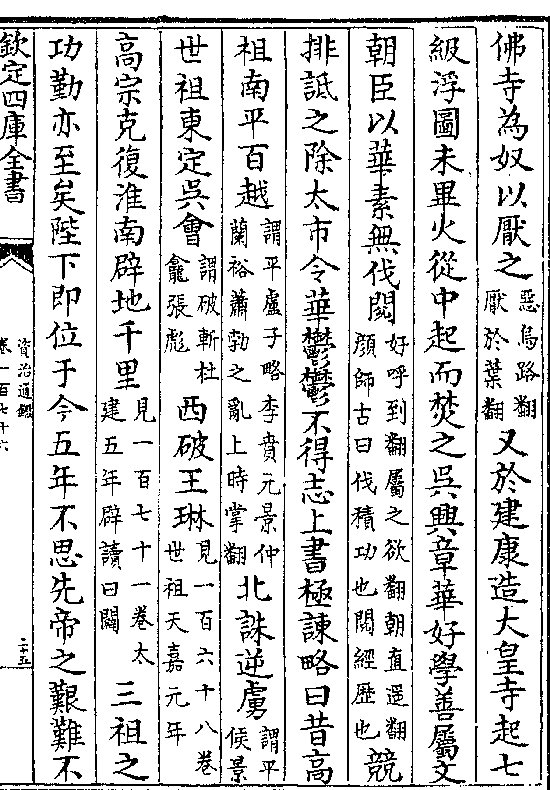 佛寺為奴以厭之惡烏路翻厭於葉翻又於建康造大皇寺起七
級浮圖未畢火從中起而焚之吳興章華好學善屬文
朝臣以華素無伐閱好呼到翻屬之欲翻朝直遥翻顔師古曰伐積功也閱經歷也競
排詆之除太市令華鬱鬱不得志上書極諫略曰昔高
祖南平百越謂平盧子略李賁元景仲蘭裕蕭勃之亂上時掌翻北誅逆虜謂平侯景
世祖東定吳會謂破斬杜龕張彪西破王琳見一百六十八卷世祖天嘉元年
高宗克復淮南辟地千里見一百七十一卷太建五年辟讀曰闢三祖之
功勤亦至矣陛下即位于今五年不思先帝之艱難不
欽定四庫全書
資治通鑑
卷一百七十六
二十五